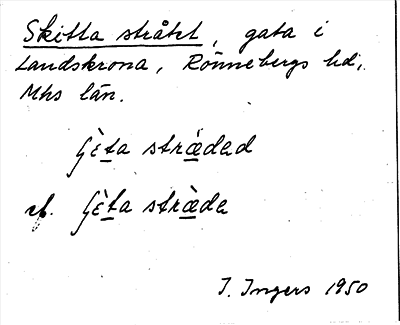 Skitta stråtet, gata i
Landskrona, Rönnebergs hd,
Mhs län.
stræded
stræde
I. Ingers 1950